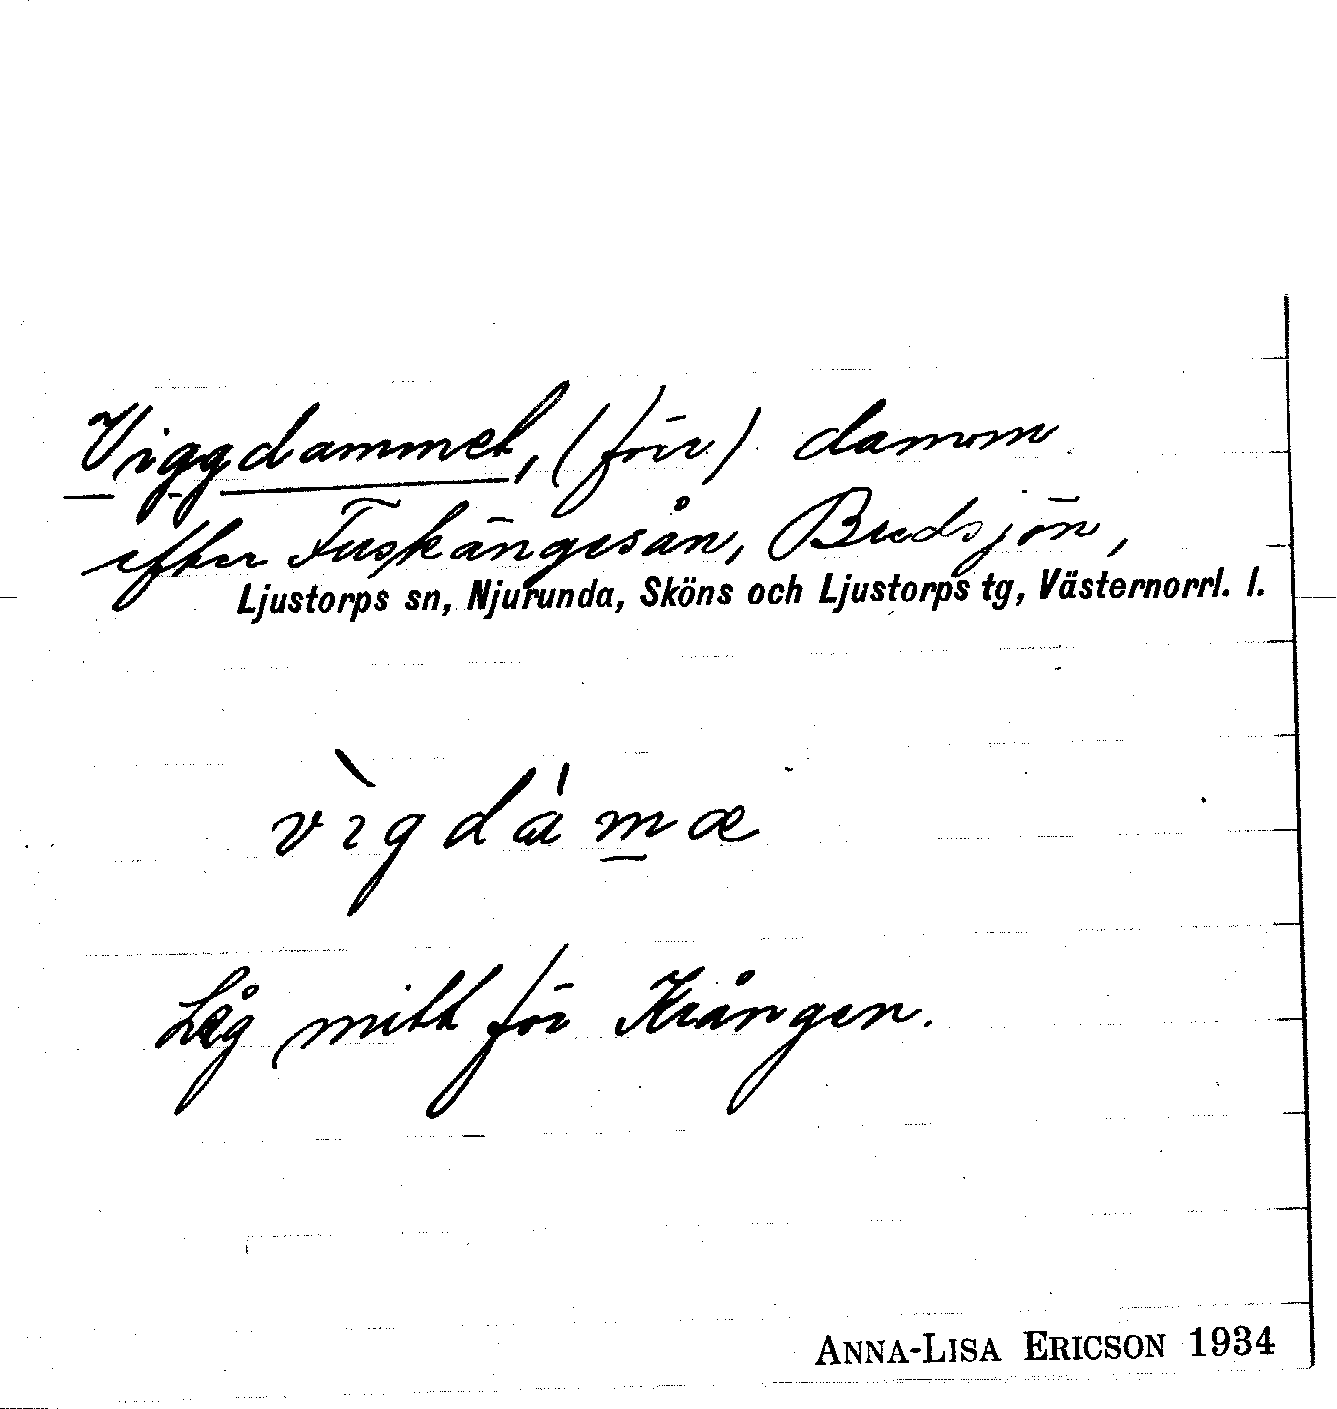 Viggdammet, (förr) damm
efter Fuskängesån, Budsjön,
Ljustorps sn, Njurunda, Sköns och Ljustorps tg, Västernorrl. l.
vìgdámæ
Låg mitt för Krången.
ANNA-LISA ERICSON 1934